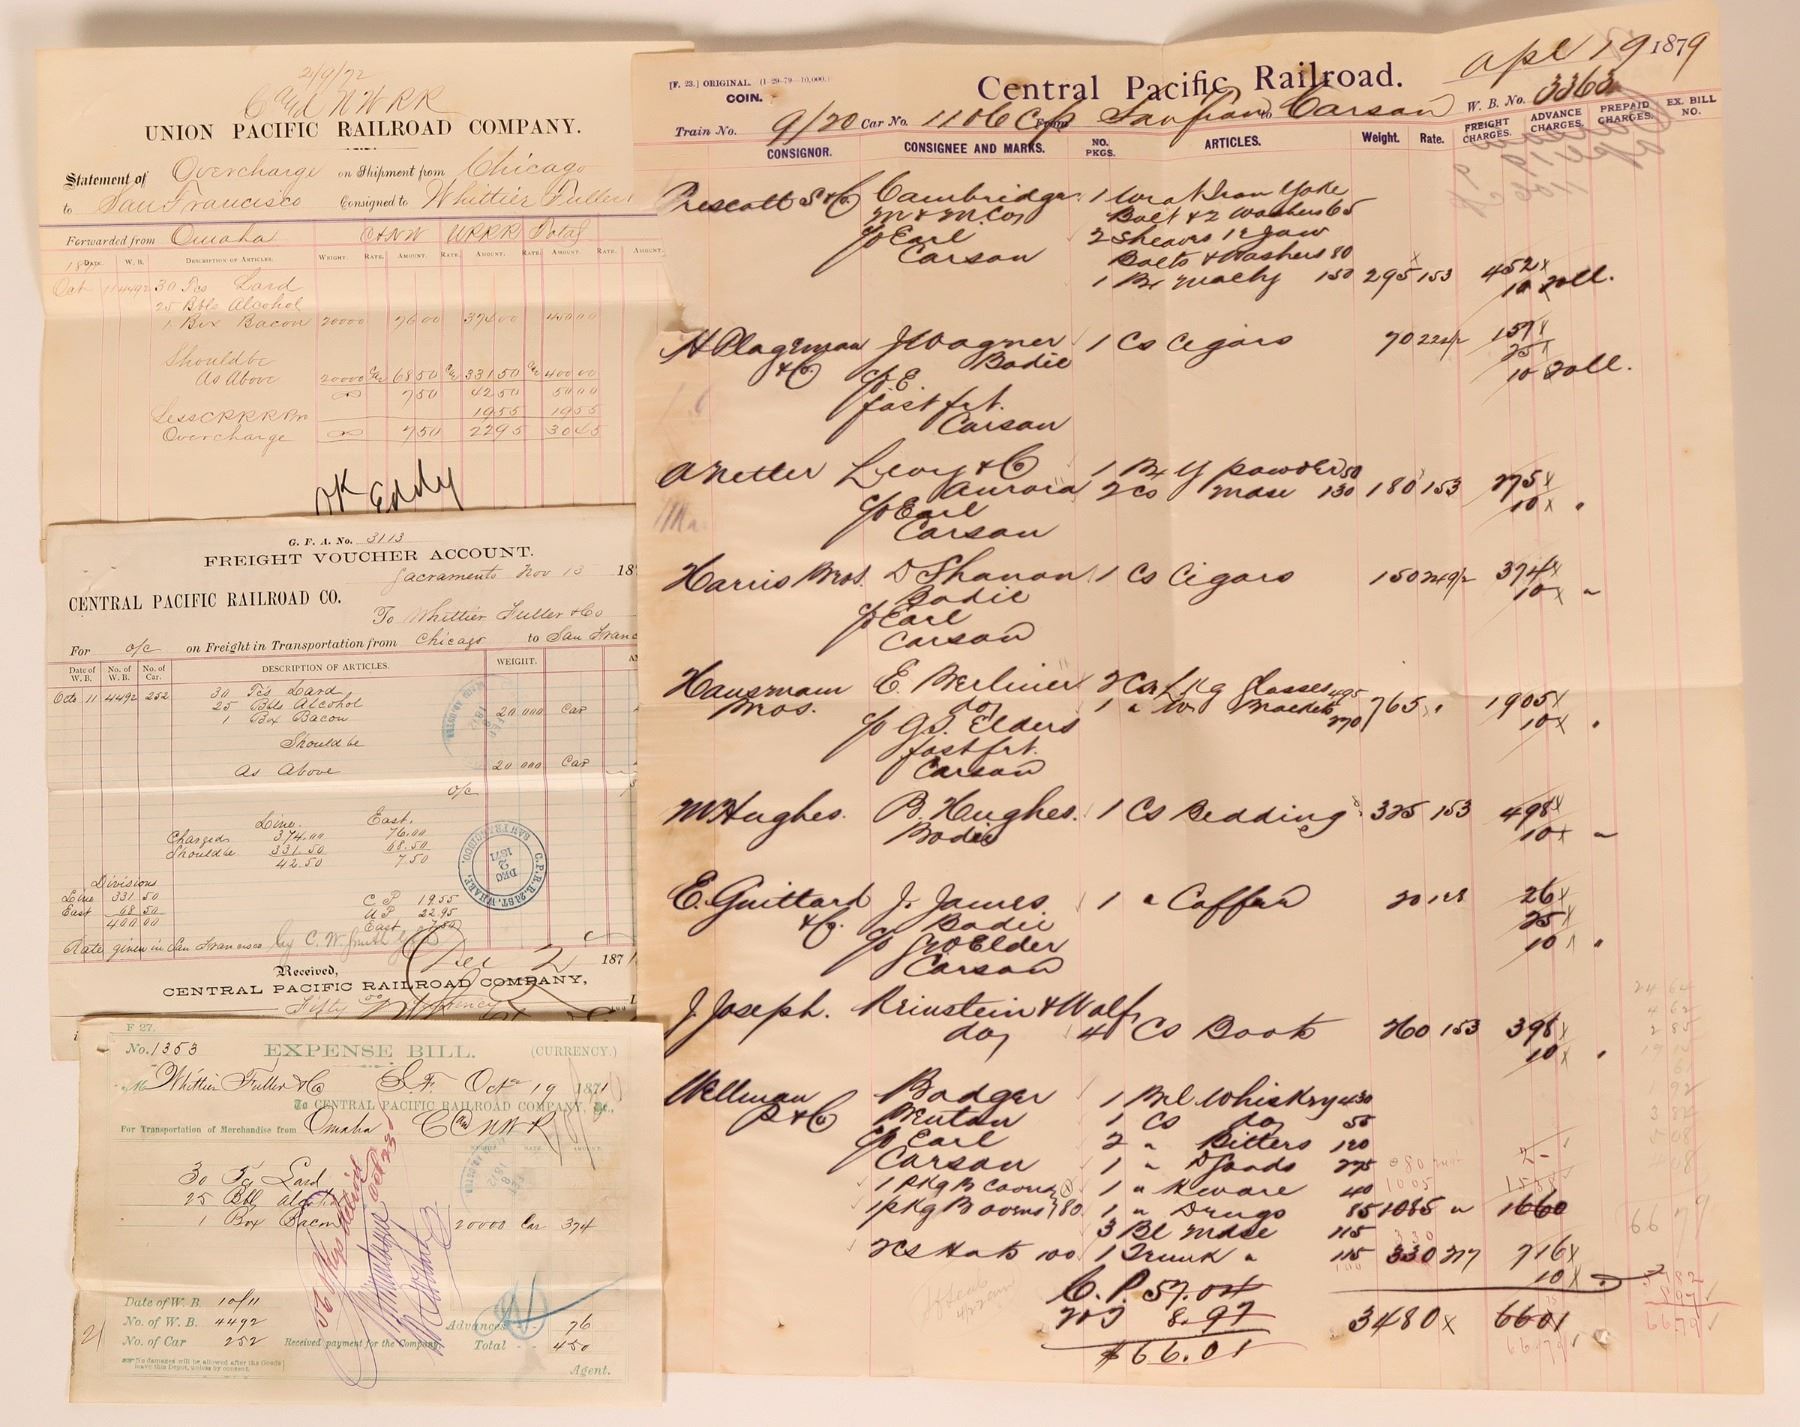 2/9/72
C & N W R R
UNION PACIFIC RAILROAD COMPANY.
Statement of Overcharge on Shipment from Chicago
to San Francisco Consigned to Whittier Fuller
Forwarded from Omaha C & N W U P R R Total
DATE. W. B. DESCRIPTION OF ARTICLES. WEIGHT. RATE. AMOUNT. RATE. AMOUNT. RATE. AMOUNT. RATE. AMOUNT.
Oct 11 4492 30 Tcs Lard
25 Bbls Alcohol
1 Box Bacon 20000 76 00 374 00 450 00
Should be
As Above 20000 68 50 331 50 400 00
7 50 42 50 50 00
19 55 19 55
Overcharge 7 50 22 95 30 45
OK Eddy
G. F. A. No. 3113
FREIGHT VOUCHER ACCOUNT.
Sacramento Nov 13 18
CENTRAL PACIFIC RAILROAD CO.
To Whittier Fuller & Co
For o/c on Freight in Transportation from Chicago to San Franc
Date of W. B. No. of W. B. No. of Car. DESCRIPTION OF ARTICLES. WEIGHT.
Oct 11 4492 252 30 Tcs Lard
25 Bbls Alcohol 20 000 Car
1 Box Bacon
Should be
As Above 20 000 Car
o/c
Line. East.
Charged 374.00 76.00
Should be 331.50 68.50
42.50 7.50
Divisions
Line 331 50 C P 19.55
East 68 50 U P 22.95
400 00 East 7.50
Rate given in San Francisco by C. W. Smith
Dec 2 1871
Received,
CENTRAL PACIFIC RAILROAD COMPANY,
Fifty
C. P. R. R. 2d ST. WHARF, SAN FRANCISCO.
DEC 2 1871
F 27.
No. 1353 EXPENSE BILL. (CURRENCY.)
M Whittier Fuller & Co S. F. Oct 19 1871
To CENTRAL PACIFIC RAILROAD COMPANY, Dr.,
For Transportation of Merchandise from Omaha C & N W R R
30 Tcs Lard
25 Bbl Alcohol
1 Box Bacon 20000 Car 374
Date of W. B. 10/11
No. of W. B. 4492 Advances 76
No. of Car 252 Received payment for the Company, Total 450
No damages will be allowed after the Goods leave this Depot, unless by consent.
Agent.
[F. 23.] ORIGINAL. (1-29-79—10,000.)
COIN.
Central Pacific Railroad. Apl 19 1879
Train No. 9/20 Car No. 1106 CP From San Fran to Carson W. B. No. 3363
CONSIGNOR. CONSIGNEE AND MARKS. NO. PKGS. ARTICLES. Weight. Rate. FREIGHT CHARGES. ADVANCE CHARGES. PREPAID CHARGES. EX. BILL NO.
Prescott S & Co Cambridge 1 Wrot Iron Yoke
M & M. Coy Bolt & 2 Washers 65
c/o Earl 2 Sheaves 12 Jaw
Carson Bolts & Washers 80
1 Bx 150 295 153 452
10 Toll.
H Plageman J Wagner 1 Cs Cigars 70 224 1/2 157
& Co Bodie 25
c/o E. 10 Toll.
fast frt.
Carson
A Netter Levy & Co 1 Bx Y Powder 50
Aurora 2 Cs Mdse 130 180 153 275
c/o Earl 10 "
Carson
Harris Bros. D Shanon 1 Cs Cigars 150 249 1/2 374
Bodie 10 "
c/o Earl
Carson
Hausmam E. Berliner 2 Cs Lkg Glasses 495
Bros. do 1 " 270 765 " 1905
c/o G. Elders 10 "
fast frt.
Carson
M Hughes. B. Hughes. 1 Cs Bedding 325 153 498
Bodie 10 "
E. Guittard J. James 1 " Coffee 20 128 26
& Co. Bodie 25
c/o Geo Elder 10 "
Carson
J. Joseph. Reinstein & Wolf
do 4 Cs Boots 260 153 398
10 "
Wellman Badger 1 Bbl Whiskey 430
P & Co Benton 1 Cs do 55
c/o Earl 2 " Bitters 120
Carson 1 " D Goods 275
1 Pkg Brooms 1 " Hware 40
1 pkg Brooms 80 1 " Drugs 85 1085 " 1660
3 Bl Mdse 115
2 Cs Hats 100 1 Trunk " 115 330 217 716
10
C. P. 57.04
8.97 3480 6601
$66.01